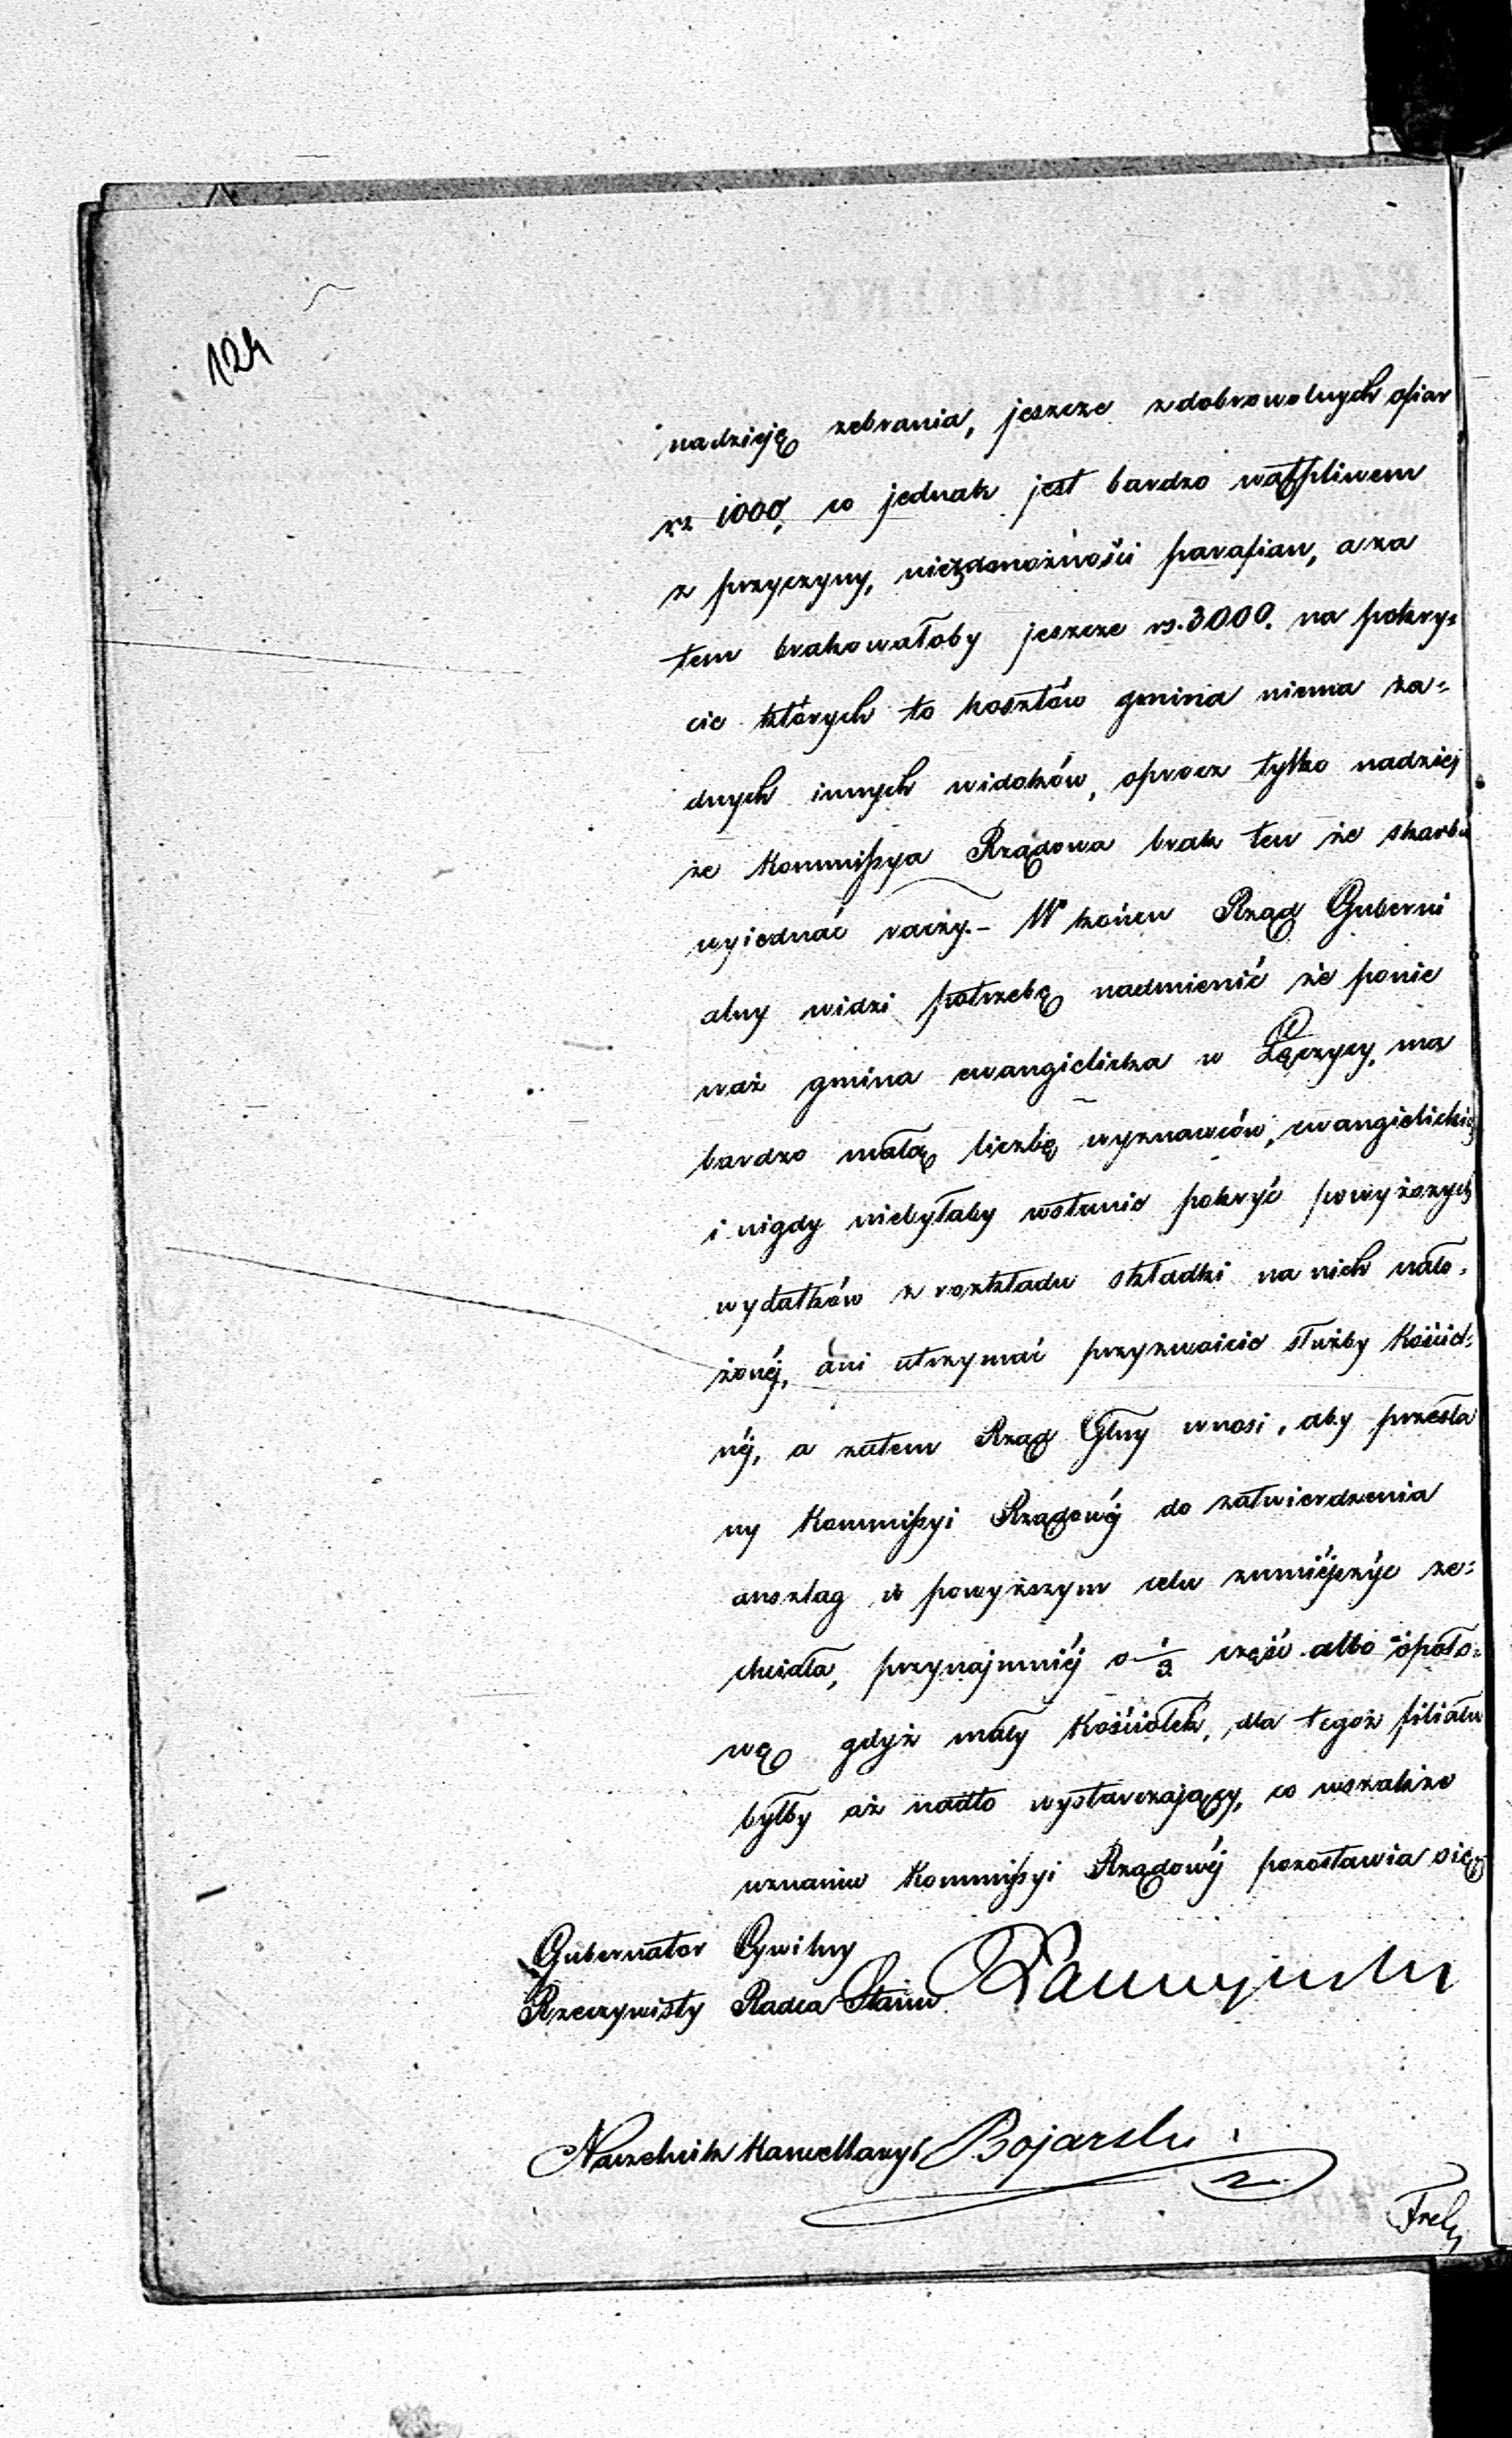 124
nadzieję zebrania, jeszcze z dobrowolnych ofiar
rs 1000, co jednak jest bardzo wątpliwem
z przyczyny, niezamożności parafian, a za
tem brakowałoby jeszcze rs. 3000. na pokry=
cie których to kosztów gmina niema ża=
dnych innych widoków, oprocz tylko nadziej
że Kommissya Rządowa brak ten ze skarbu
wyiednać raczy.- W końcu Rząd Guberni
alny widzi potrzebę nadmienić że ponie
waż gmina ewangielicka w Łęczycy, ma
bardzo małą liczbę wyznawców, ewangielickich
i nigdy niebyłaby wstanie pokryć powyższych
wydatków z rozkładu składki na nich nało-
żonéj, ani utrzymać przyzwoicie służby Kościel=
néj, a zatem Rząd Glny wnosi, aby przesła
ny Kommissyi Rządowéj do zatwierdzenia
anszlag w powyższym celu zmniéjszyć ze=
chciała, przynajmniéj o 1/3 część albo i poło=
wę gdyż mały Kościołek, dla tegoż filiału
byłby aż nadto wystarczający, co wszakże
uznaniu Kommissyi Rządowéj pozostawia się
Gubernator Cywilny
Rzeczywisty Radca Stanu
Naczelnik Kancellaryi Bojarski